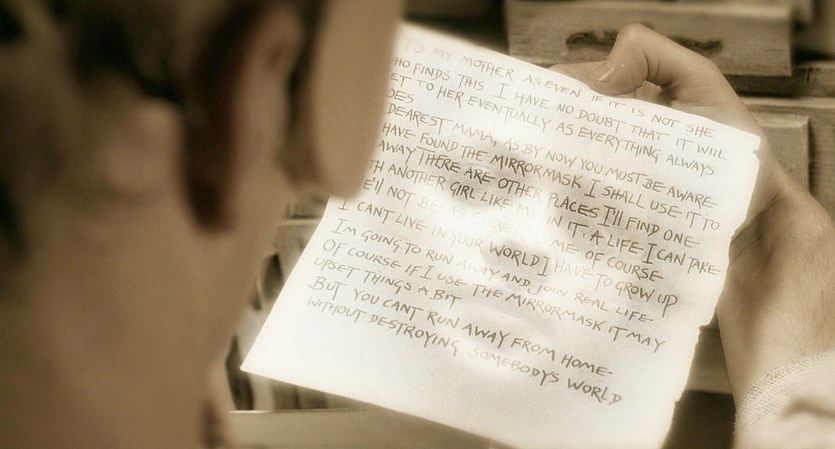 TO MY MOTHER AS EVEN IF IT IS NOT SHE
HO FINDS THIS I HAVE NO DOUBT THAT IT WILL
ET TO HER EVENTUALLY AS EVERYTHING ALWAYS
OES
DEAREST MAMA, AS BY NOW YOU MUST BE AWARE
HAVE FOUND THE MIRRORMASK I SHALL USE IT TO
AWAY THERE ARE OTHER PLACES I'LL FIND ONE
TH ANOTHER GIRL LIKE ME IN IT, A LIFE I CAN TAKE
E'LL NOT BE AS ME OF COURSE
I CANT LIVE IN YOUR WORLD I HAVE TO GROW UP
I'M GOING TO RUN AWAY AND JOIN REAL LIFE
OF COURSE IF I USE THE MIRRORMASK IT MAY
UPSET THINGS A BIT
BUT YOU CANT RUN AWAY FROM HOME
WITHOUT DESTROYING SOMEBODYS WORLD